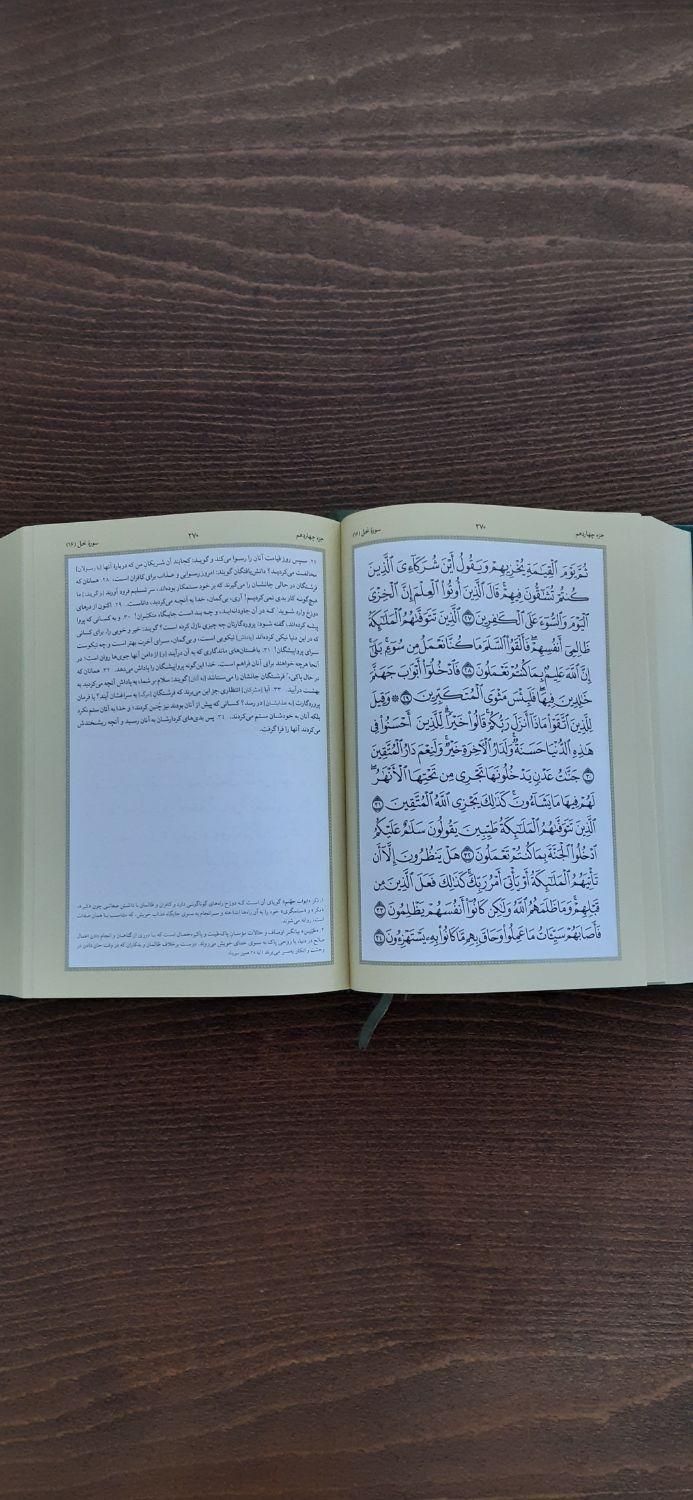 جزء چهاردهم
۲۷۰
سورهٔ نحل (۱۶)
ثُمَّ يَوْمَ ٱلْقِيَٰمَةِ يُخْزِيهِمْ وَيَقُولُ أَيْنَ شُرَكَآءِيَ ٱلَّذِينَ
كُنتُمْ تُشَٰٓقُّونَ فِيهِمْ ۚ قَالَ ٱلَّذِينَ أُوتُوا۟ ٱلْعِلْمَ إِنَّ ٱلْخِزْىَ
ٱلْيَوْمَ وَٱلسُّوٓءَ عَلَى ٱلْكَٰفِرِينَ ۝٢٧ ٱلَّذِينَ تَتَوَفَّىٰهُمُ ٱلْمَلَٰٓئِكَةُ
ظَالِمِىٓ أَنفُسِهِمْ ۖ فَأَلْقَوُا۟ ٱلسَّلَمَ مَا كُنَّا نَعْمَلُ مِن سُوٓءٍۭ ۚ بَلَىٰٓ
إِنَّ ٱللَّهَ عَلِيمٌۢ بِمَا كُنتُمْ تَعْمَلُونَ ۝٢٨ فَٱدْخُلُوٓا۟ أَبْوَٰبَ جَهَنَّمَ
خَٰلِدِينَ فِيهَا ۖ فَلَبِئْسَ مَثْوَى ٱلْمُتَكَبِّرِينَ ۝٢٩ ۞ وَقِيلَ
لِلَّذِينَ ٱتَّقَوْا۟ مَاذَآ أَنزَلَ رَبُّكُمْ ۚ قَالُوا۟ خَيْرًا ۗ لِّلَّذِينَ أَحْسَنُوا۟ فِى
هَٰذِهِ ٱلدُّنْيَا حَسَنَةٌ ۚ وَلَدَارُ ٱلْءَاخِرَةِ خَيْرٌ ۚ وَلَنِعْمَ دَارُ ٱلْمُتَّقِينَ
۝٣٠ جَنَّٰتُ عَدْنٍ يَدْخُلُونَهَا تَجْرِى مِن تَحْتِهَا ٱلْأَنْهَٰرُ ۖ
لَهُمْ فِيهَا مَا يَشَآءُونَ ۚ كَذَٰلِكَ يَجْزِى ٱللَّهُ ٱلْمُتَّقِينَ ۝٣١
ٱلَّذِينَ تَتَوَفَّىٰهُمُ ٱلْمَلَٰٓئِكَةُ طَيِّبِينَ ۙ يَقُولُونَ سَلَٰمٌ عَلَيْكُمُ
ٱدْخُلُوا۟ ٱلْجَنَّةَ بِمَا كُنتُمْ تَعْمَلُونَ ۝٣٢ هَلْ يَنظُرُونَ إِلَّآ أَن
تَأْتِيَهُمُ ٱلْمَلَٰٓئِكَةُ أَوْ يَأْتِىَ أَمْرُ رَبِّكَ ۚ كَذَٰلِكَ فَعَلَ ٱلَّذِينَ مِن
قَبْلِهِمْ ۚ وَمَا ظَلَمَهُمُ ٱللَّهُ وَلَٰكِن كَانُوٓا۟ أَنفُسَهُمْ يَظْلِمُونَ ۝٣٣
فَأَصَابَهُمْ سَيِّـَٔاتُ مَا عَمِلُوا۟ وَحَاقَ بِهِم مَّا كَانُوا۟ بِهِۦ يَسْتَهْزِءُونَ ۝٣٤
جزء چهاردهم
۲۷۰
سورهٔ نحل (۱۶)
۲۷. سپس روز قیامت آنان را رسوا می‌کند و گوید: کجایند آن شریکان من که دربارهٔ آنها [با رسولان]
مخالفت می‌کردید؟ دانش‌یافتگان گویند: امروز رسوایی و عذاب برای کافران است. ۲۸. همانان که
فرشتگان در حالی جانشان را می‌گیرند که بر خود ستمکار بوده‌اند، سر تسلیم فرود آورند [و گویند:] ما
هیچ‌گونه کار بدی نمی‌کردیم! آری، بی‌گمان، خدا به آنچه می‌کردید، داناست. ۲۹. اکنون از درهای
دوزخ وارد شوید که در آن جاودانه‌اید، و چه بد است جایگاه متکبران! ۳۰. و به کسانی که پروا
پیشه کرده‌اند، گفته شود: پروردگارتان چه چیزی نازل کرده است؟ گویند: خیر و خوبی را. برای کسانی
که در این دنیا نیکی کرده‌اند [پاداش] نیکویی است، و بی‌گمان، سرای آخرت بهتر است و چه نیکوست
سرای پرواپیشگان! ۳۱. باغستان‌های ماندگاری که به آن درآیند [و] از دامن آنها جوی‌ها روان است؛ در
آنجا هرچه خواهند برای آنان فراهم است. خدا این‌گونه پرواپیشگان را پاداش می‌دهد. ۳۲. همانان که
در حال پاکی، فرشتگان جانشان را می‌ستانند [به آنان] گویند: سلام بر شما، به پاداش آنچه می‌کردید به
بهشت درآیید. ۳۳. آیا [مشرکان] انتظاری جز این می‌برند که فرشتگان [مرگ] به سراغشان آیند؟ یا فرمان
پروردگارت [به عذابشان] در رسد؟ کسانی که پیش از آنان بودند نیز چنین کردند؛ و خدا به آنان ستم نکرد
بلکه آنان به خودشان ستم می‌کردند. ۳۴. پس بدی‌های کردارشان به آنان رسید و آنچه ریشخندش
می‌کردند آنها را فرا گرفت.